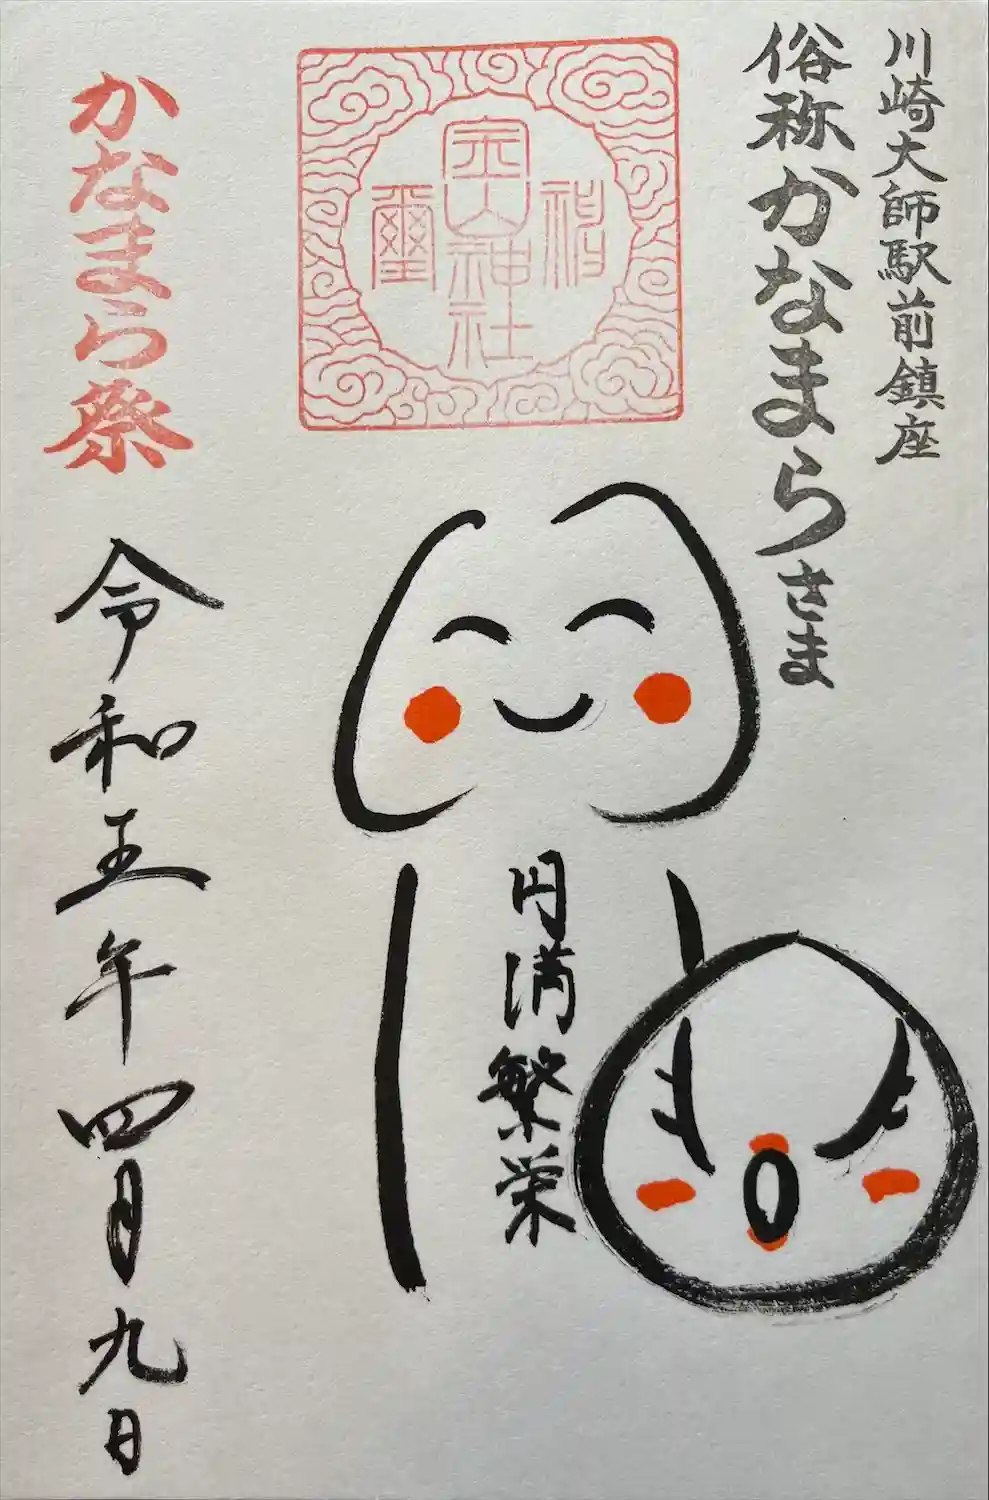 川崎大師駅前鎮座
俗称かなまらさま
金山神社
祠
璽
円満繁栄
かなまら祭
令和五年四月九日